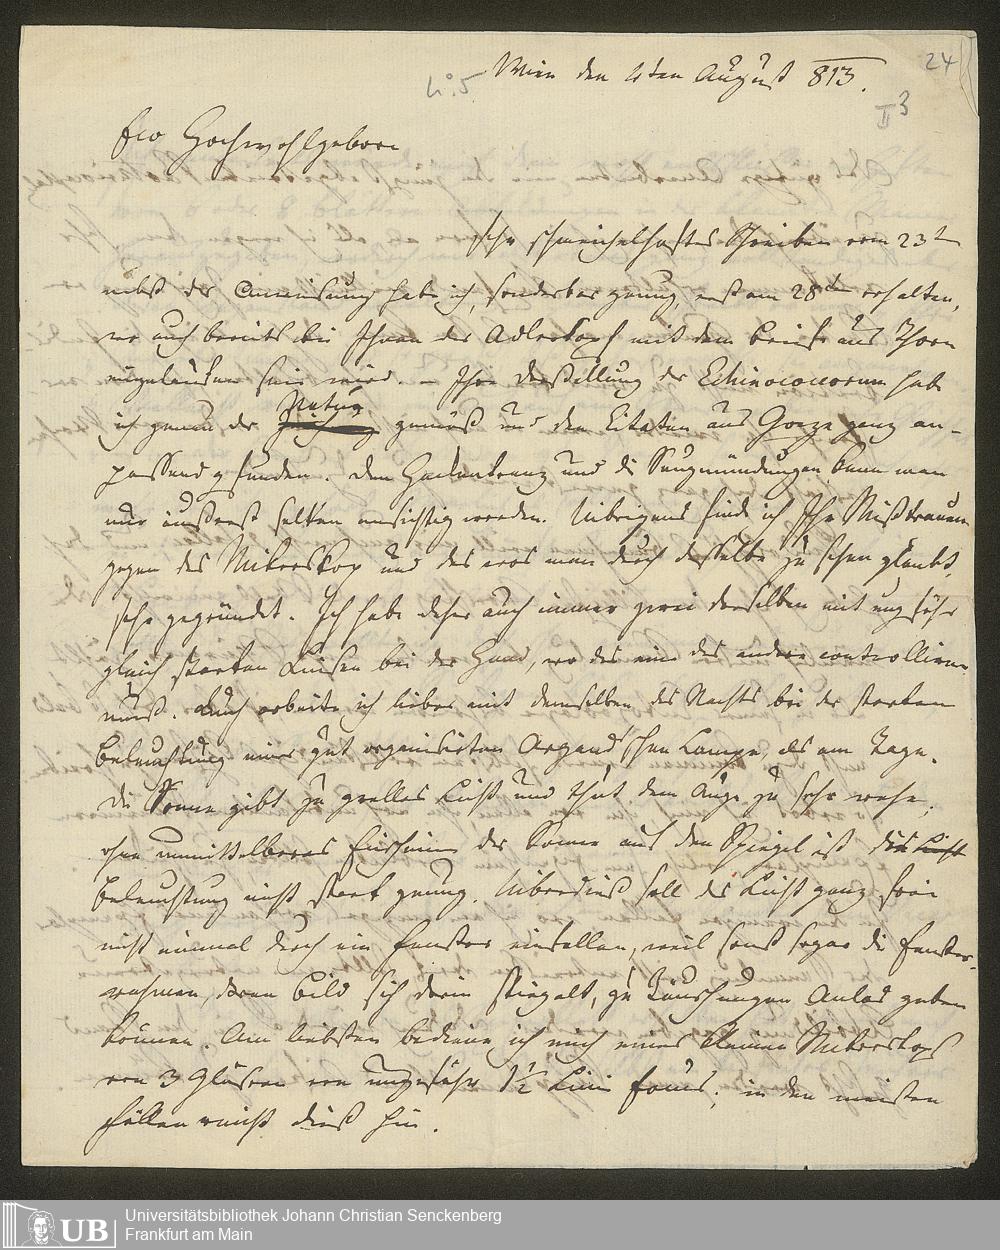 24
Wien den 4ten August 813.
N: 5.
II 3
Ew Hochwohlgeborn
sehr schmeichelhaftes Schreiben vom 23t
nebst der Anweisung habe ich, sonderbar genug, erst am 28ten erhalten,
wo auch bereits bei Ihnen der Adlerkopf mit dem Briefe aus Thorn
eingelaufen sein wird. – Ihre Darstellung der Echinococcorum habe
ich genau der Natur gemäß und den Citaten aus Goeze ganz an-
passend gefunden. Den Hackenkranz und die Saugmündungen kann man
nur äußerst selten ansichtig werden. Uibrigens finde ich Ihr Mißtrauen
gegen das Mikroskop und das was man durch dasselbe zu sehen glaubt,
sehr gegründet. Ich habe daher auch immer zwei derselben mit ungefähr
gleich starken Linsen bei der Hand, wo das eine das andere controlliren
muß. Auch arbeite ich lieber mit demselben des Nachts bei der starken
Beleuchtung einer gut organisirten Argand'schen Lampe, als am Tage.
Die Sonne gibt zu grelles Licht und thut dem Auge zu sehr wehe;
ohne unmittelbares Einscheinen der Sonne auf den Spiegel ist die Licht
Beleuchtung nicht stark genug. Uiberdieß soll das Licht ganz frei
nicht einmal durch ein Fenster einfallen, weil sonst sogar die Fenster-
rahmen, deren Bild sich darin spiegelt, zu Täuschungen Anlas geben
können. Am liebsten bediene ich mich eines kleinen Mikroskops
von 3 Gläsern von ungefähr 1½ Linie Focus; in den meisten
Fällen reicht dieß hin.
UB
Universitätsbibliothek Johann Christian Senckenberg
Frankfurt am Main